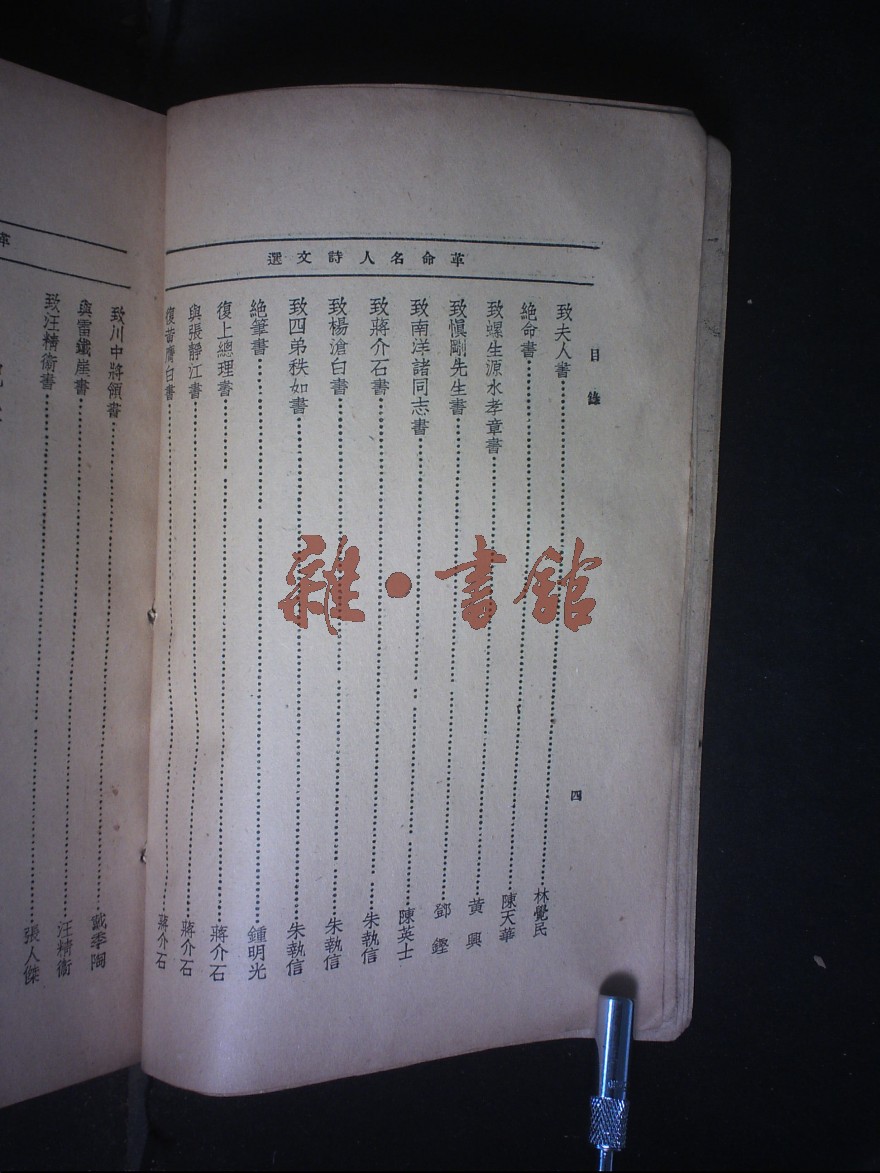 革命名人詩文選
目錄
四
致夫人書 林覺民
絕命書 陳天華
致螺生源水孝章書 黃興
致慎剛先生書 鄧鏗
致南洋諸同志書 陳英士
致蔣介石書 朱執信
致楊滄白書 朱執信
致四弟秩如書 朱執信
絕筆書 鍾明光
復上總理書 蔣介石
與張靜江書 蔣介石
復黃膺白書 蔣介石
致川中將領書 戴季陶
與雷鐵崖書 汪精衞
致汪精衞書 張人傑
雜·書館